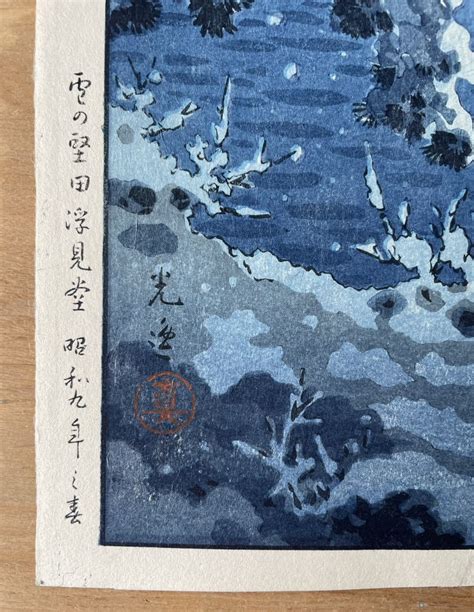 雪の堅田浮見堂 昭和九年之春
光逸